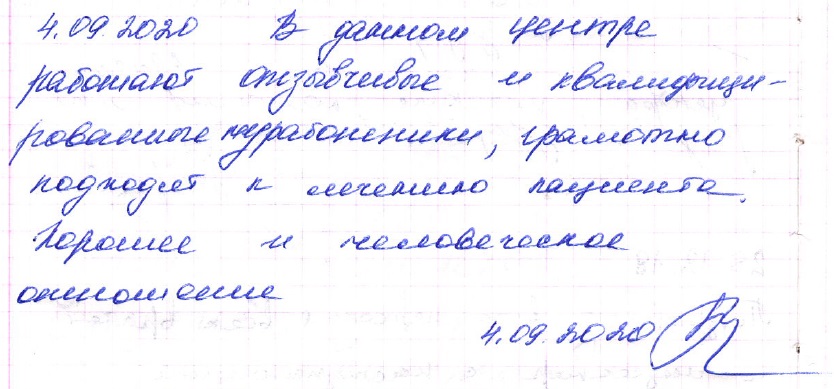 4.09.2020 В данном центре
работают отзывчивые и квалифици-
рованные медработники, грамотно
подходят к лечению пациента.
Хорошее и человеческое
отношение
4.09.2020